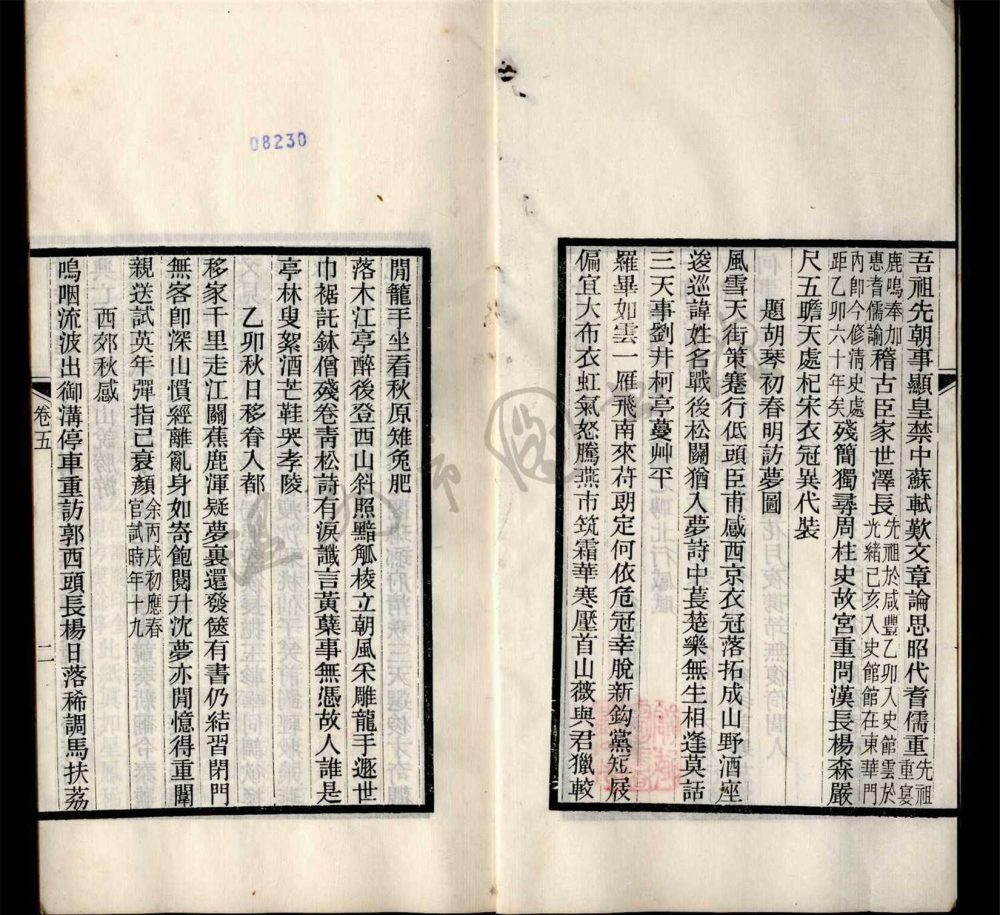 吾祖先朝事顯皇禁中蘇軾歎文章論思昭代耆儒重先祖重宴
鹿鳴奉加惠耆儒諭稽古臣家世澤長先祖於咸豐乙卯入史館雲於光緒己亥入史館館在東華門
內卽今修清史處距乙卯六十年矣殘簡獨尋周柱史故宮重問漢長楊森嚴
尺五瞻天處杞宋衣冠異代裝
題胡琴初春明訪夢圖
風雪天街策蹇行低頭臣甫感西京衣冠落拓成山野酒座
逡巡諱姓名戰後松關猶入夢詩中萇楚樂無生相逢莫話
三天事劉井柯亭蔓艸平
羅畢如雲一雁飛南來苻朗定何依危冠幸脫新鈎黨短屐
偏宜大布衣虹氣怒騰燕市筑霜華寒壓首山薇與君獵較
閒籠手坐看秋原雉兔肥
落木江亭醉後登西山斜照黯觚棱立朝風采雕龍手遯世
巾裾託鉢僧殘卷靑松詩有淚讖言黃蘖事無憑故人誰是
亭林叟絮酒芒鞋哭孝陵
乙卯秋日移眷入都
移家千里走江關蕉鹿渾疑夢裏還發篋有書仍結習閉門
無客卽深山慣經離亂身如寄飽閱升沈夢亦閒憶得重闈
親送試英年彈指已衰顏余丙戌初應春官試時年十九
西郊秋感
嗚咽流波出御溝停車重訪郭西頭長楊日落稀調馬扶荔
卷五
二
08230